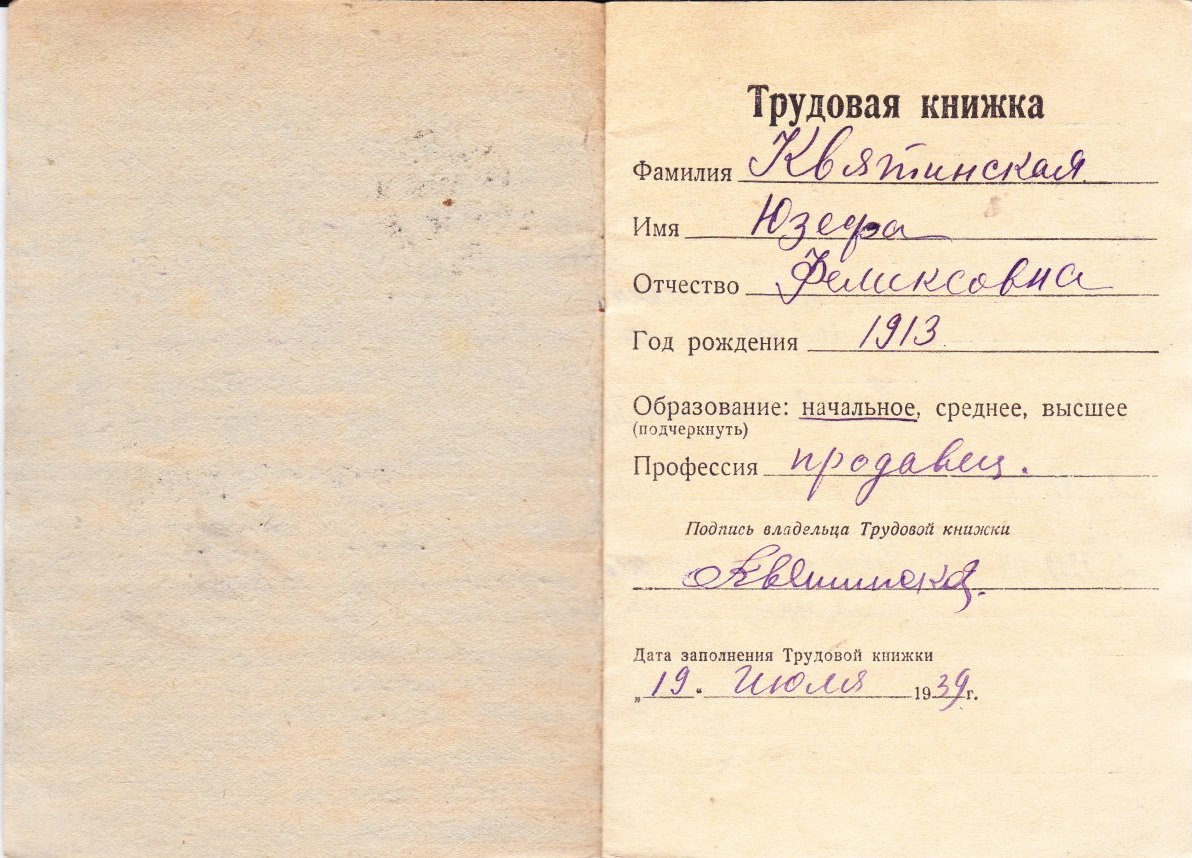 Трудовая книжка
Фамилия Квятинская
Имя Юзефа
Отчество Феликсовна
Год рождения 1913
Образование: начальное, среднее, высшее
(подчеркнуть)
Профессия продавец.
Подпись владельца Трудовой книжки
Квятинская.
Дата заполнения Трудовой книжки
„19“ июля 1939 г.